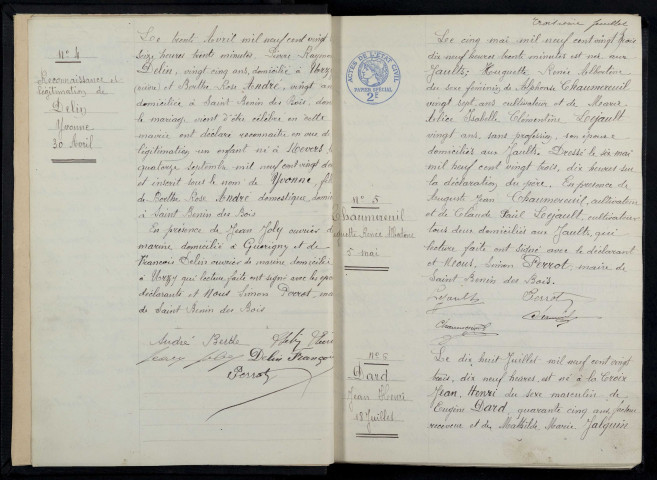 N° 4
Reconnaissance et
légitimation de
Delin
Yvonne
30 Avril
Le trente Avril mil neuf cent vingt
seize heures trente minutes, Pierre Raymon
Delin, vingt cinq ans, domicilié à Urzy
et Berthe Rose André, vingt ans
domiciliée à Saint Benin des Bois, dont
le mariage vient d'être célébré en cette
mairie ont déclaré reconnaître en vue de
légitimation un enfant né à Nevers le
quatorze septembre mil neuf cent vingt
et inscrit sous le nom de Yvonne, fil
de Berthe Rose André domestique, domi
à Saint Benin des Bois
En présence de Jean Joly ouvrier d
marine domicilié à Guérigny et de
François Delin ouvrier de marine domicilié
à Urzy qui lecture faite ont signé avec les
déclarants et Nous Simon Perrot, maire
de Saint Benin des Bois
André Berthe
Jean Joly Delin François
Perrot
ACTES DE L'ÉTAT CIVIL
PAPIER SPÉCIAL
2F
Troisième feuillet
N° 5
Chaumereuil
Huguette Renée Albertine
5 mai
Le cinq mai mil neuf cent vingt trois
dix neuf heures trente minutes est née aux
Jaults, Huguette Renée Albertine
du sexe féminin, de Alphonse Chaumereuil
vingt sept ans, cultivateur et de Marie
Alice Isabelle Clémentine Lejault
vingt ans, sans profession, son épouse
domiciliés aux Jaults. Dressé le six mai
mil neuf cent vingt trois, dix heures sur
la déclaration du père. En présence de
Auguste Jean Chaumereuil, cultivateur
et de Claude Lejault, cultivateur
tous deux domiciliés aux Jaults, qui
lecture faite ont signé avec le déclarant
et Nous, Simon Perrot, maire de
Saint Benin des Bois.
Lejault Perrot
Chaumereuil
N° 6
Dard
Jean Henri
18 Juillet
Le dix huit Juillet mil neuf cent vingt
trois, dix neuf heures, est né à la Croix
Jean, Henri du sexe masculin de
Eugène Dard, quarante cinq ans, facteur
receveur et de Mathilde, Marie Jalquin